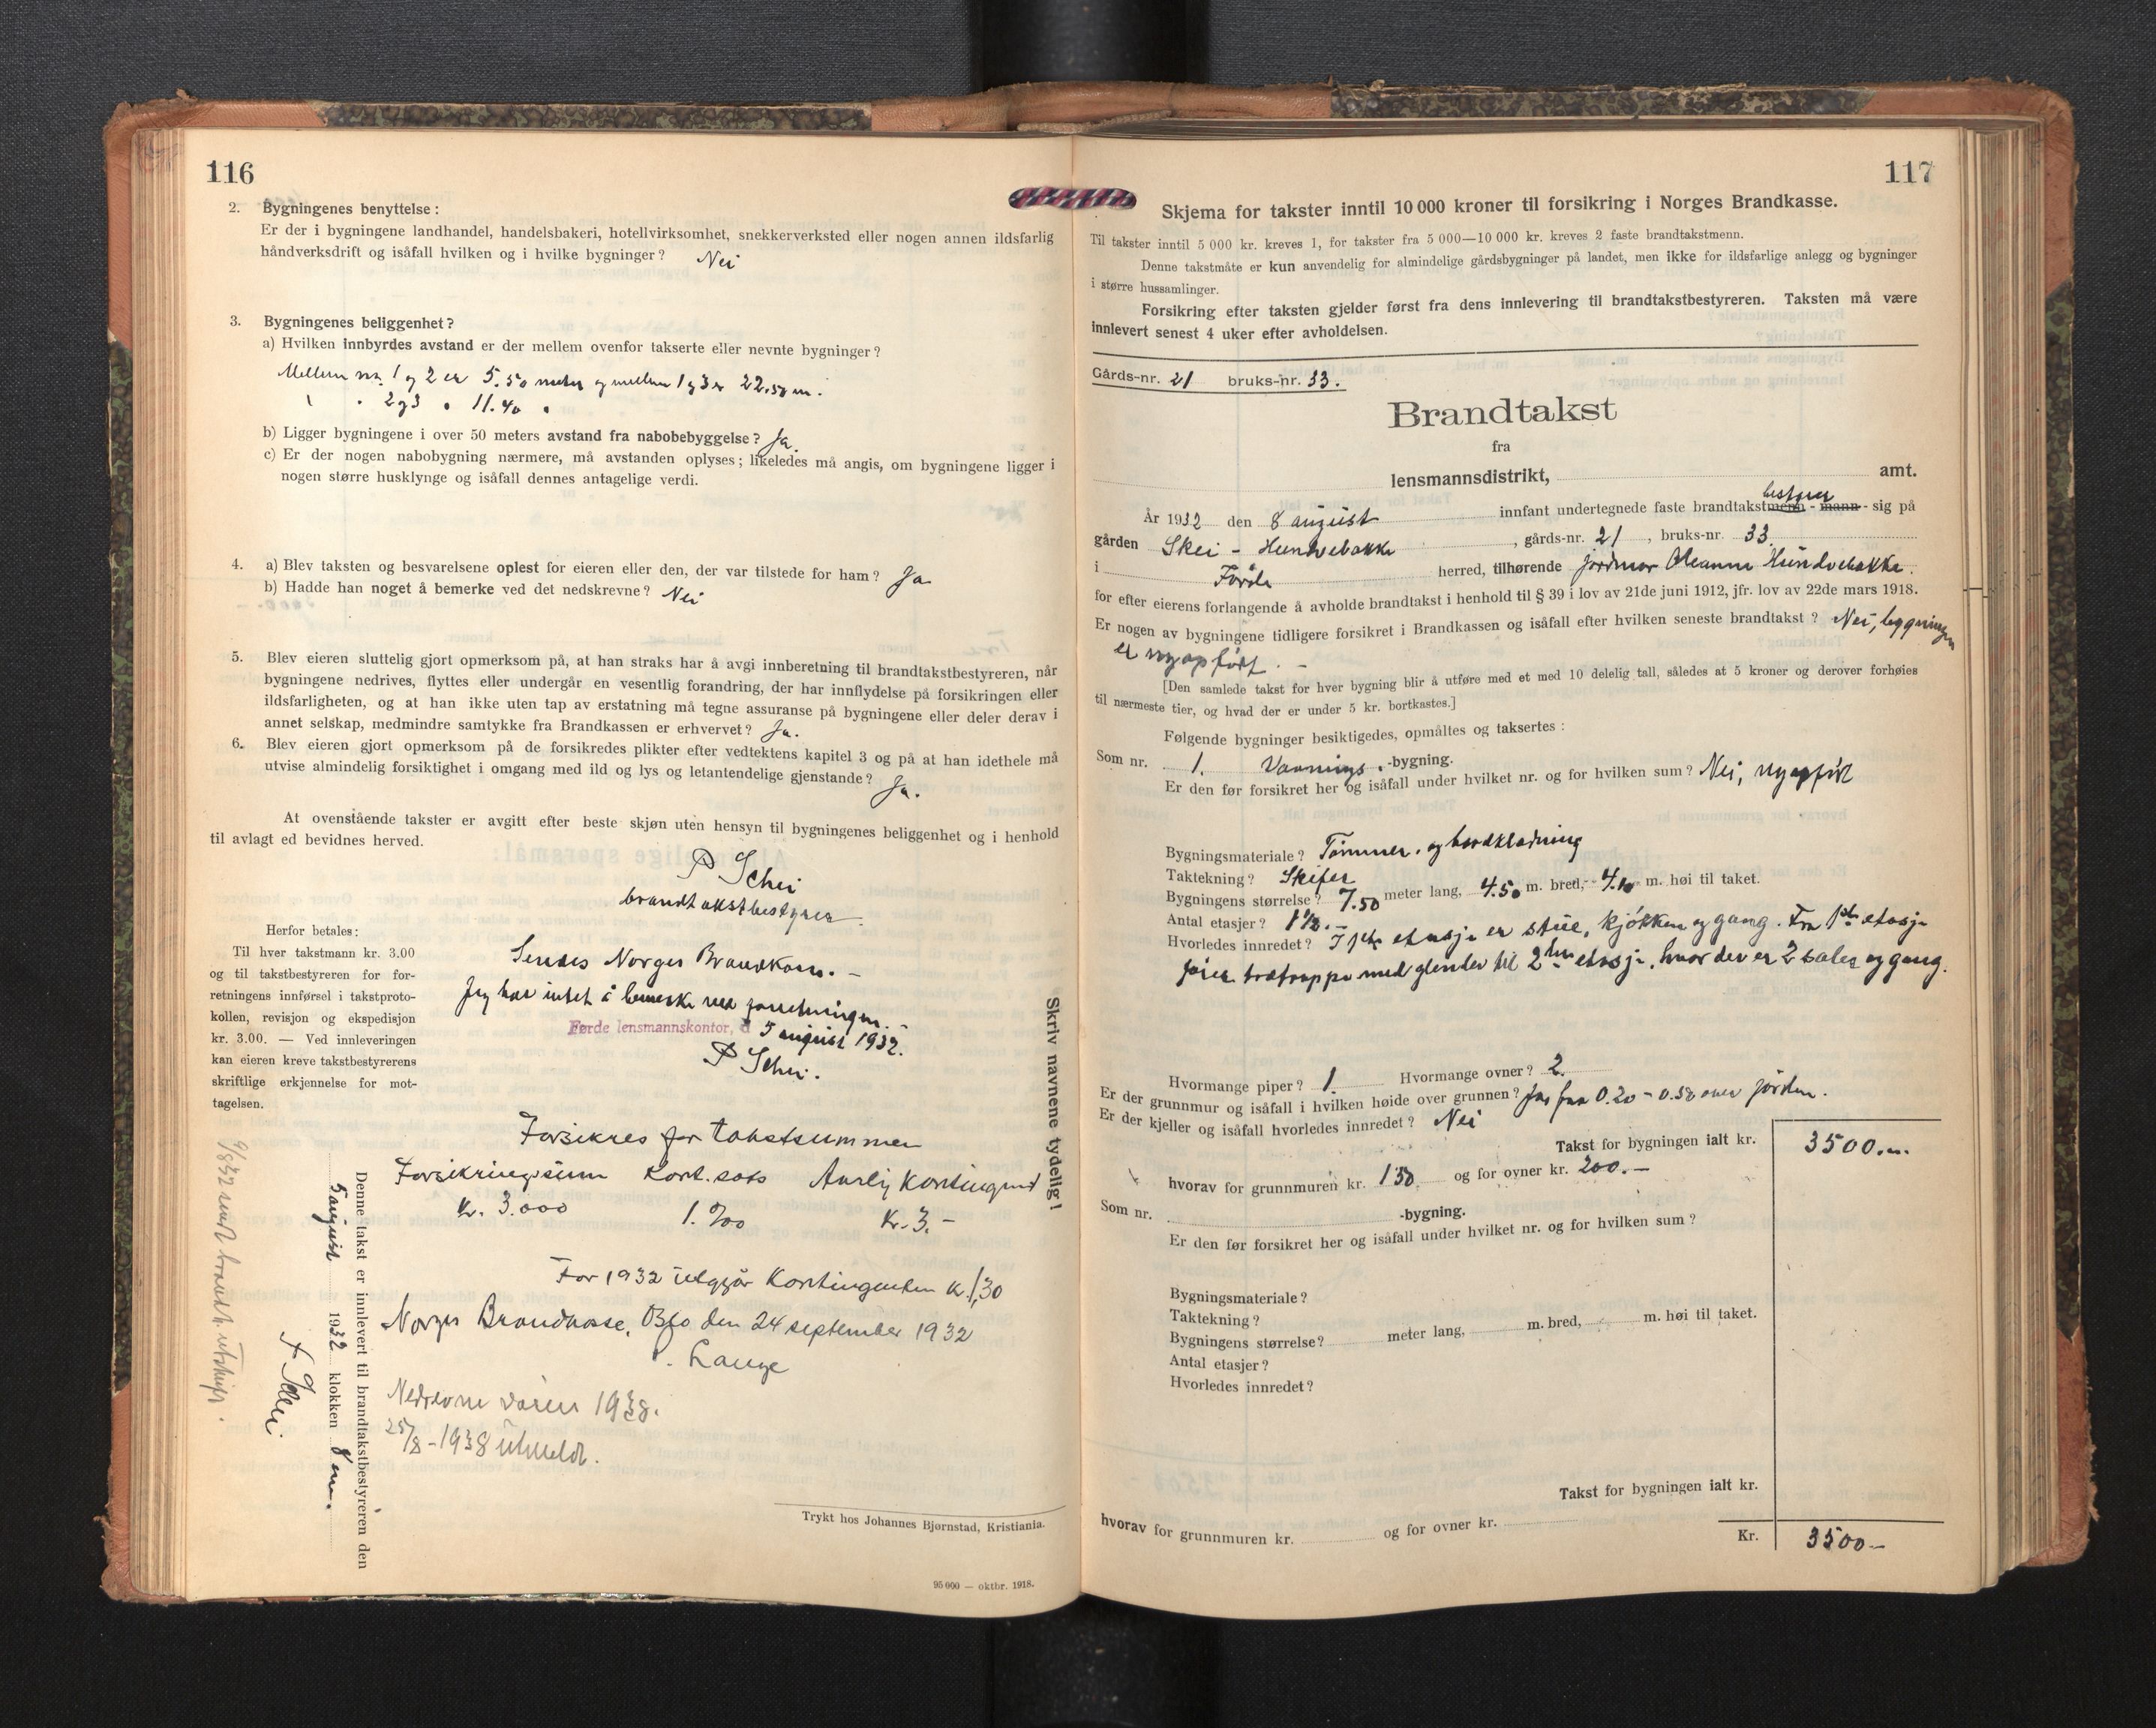 116
2. Bygningenes benyttelse:
Er der i bygningene landhandel, handelsbakeri, hotellvirksomhet, snekkerverksted eller nogen annen ildsfarlig
håndverksdrift og isåfall hvilken og i hvilke bygninger? Nei
3. Bygningenes beliggenhet?
a) Hvilken innbyrdes avstand er der mellem ovenfor takserte eller nevnte bygninger?
Mellem nr. 1 og 2 er 5.50 meter og mellem 1 og 3 er 22.50 m.
" " 2 og 3 " 11.40 "
b) Ligger bygningene i over 50 meters avstand fra nabobebyggelse? Ja.
c) Er der nogen nabobygning nærmere, må avstanden oplyses; likeledes må angis, om bygningene ligger i
nogen større husklynge og isåfall dennes antagelige verdi.
4. a) Blev taksten og besvarelsene oplest for eieren eller den, der var tilstede for ham? Ja
b) Hadde han noget å bemerke ved det nedskrevne? Nei
5. Blev eieren sluttelig gjort opmerksom på, at han straks har å avgi innberetning til brandtakstbestyreren, når
bygningene nedrives, flyttes eller undergår en vesentlig forandring, der har innflydelse på forsikringen eller
ildsfarligheten, og at han ikke uten tap av erstatning må tegne assuranse på bygningene eller deler derav i
annet selskap, medmindre samtykke fra Brandkassen er erhvervet? Ja.
6. Blev eieren gjort opmerksom på de forsikredes plikter efter vedtektens kapitel 3 og på at han idethele må
utvise almindelig forsiktighet i omgang med ild og lys og letantendelige gjenstande? Ja.
At ovenstående takster er avgitt efter beste skjøn uten hensyn til bygningenes beliggenhet og i henhold
til avlagt ed bevidnes herved.
P Schei
brandtakstbestyrer
Herfor betales:
Til hver takstmann kr. 3.00
og til takstbestyreren for for-
retningens innførsel i takstproto-
kollen, revisjon og ekspedisjon
kr. 3.00. — Ved innleveringen
kan eieren kreve takstbestyrerens
skriftlige erkjennelse for mot-
tagelsen.
Sendes Norges Brandkasse. -
Jeg har intet å bemerke ved forretningen. -
Førde lensmannskontor, d 5 august 1932.
P Schei.
Skriv navnene tydelig!
Forsikres for takstsummen
Forsikringssum Kont.sats Aarlig Kontingent
Kr. 3.000 1. ‰ Kr. 3.-
For 1932 utgjør Kontingenten kr. 1,30
Norges Brandkasse, Oslo den 24 september 1932
Lange
Nedrevne våren 1938.
25/8-1938 utmeldt.
Denne takst er innlevert til brandtakstbestyreren den
5 august 1932 klokken 8 em.
P Schei
9/8 32 sendt brandt. utskrift.
Trykt hos Johannes Bjørnstad, Kristiania.
95 000 — oktbr. 1918.
117
Skjema for takster inntil 10 000 kroner til forsikring i Norges Brandkasse.
Til takster inntil 5 000 kr. kreves 1, for takster fra 5 000—10 000 kr. kreves 2 faste brandtakstmenn.
Denne takstmåte er kun anvendelig for almindelige gårdsbygninger på landet, men ikke for ildsfarlige anlegg og bygninger
i større hussamlinger.
Forsikring efter taksten gjelder først fra dens innlevering til brandtakstbestyreren. Taksten må være
innlevert senest 4 uker efter avholdelsen.
Gårds-nr. 21 bruks-nr. 33.
Brandtakst
fra
lensmannsdistrikt, amt.
År 1932 den 8 august innfant undertegnede faste brandtakstmenn - mann - bestyrer sig på
gården Skei - Hundvebakke, gårds-nr. 21, bruks-nr. 33
i Førde herred, tilhørende jordmor Oleanna Hundvebakke.
for efter eierens forlangende å avholde brandtakst i henhold til § 39 i lov av 21de juni 1912, jfr. lov av 22de mars 1918.
Er nogen av bygningene tidligere forsikret i Brandkassen og isåfall efter hvilken seneste brandtakst? Nei, bygningen
er nyopført. -
[Den samlede takst for hver bygning blir å utføre med et med 10 delelig tall, således at 5 kroner og derover forhøies
til nærmeste tier, og hvad der er under 5 kr. bortkastes.]
Følgende bygninger besiktigedes, opmåltes og taksertes:
Som nr. 1. Vaanings-bygning.
Er den før forsikret her og isåfall under hvilket nr. og for hvilken sum? Nei, nyopført
Bygningsmateriale? Tømmer og bordkledning
Taktekning? Skifer
Bygningens størrelse? 7.50 meter lang, 4.50 m. bred, 4.10 m. høi til taket.
Antal etasjer? 1½. -
Hvorledes innredet? I 1ste etasje er stue, kjøkken og gang. Fra 1ste etasje
fører trætrappe med glender til 2den etasje, hvor der er 2 saler og gang.
Hvormange piper? 1. Hvormange ovner? 2.
Er der grunnmur og isåfall i hvilken høide over grunnen? Ja, fra 0.20 - 0.50 over jorden.
Er der kjeller og isåfall hvorledes innredet? Nei
Takst for bygningen ialt kr. 3500.-
hvorav for grunnmuren kr. 150 og for ovner kr. 200.-
Som nr. -bygning.
Er den før forsikret her og isåfall under hvilket nr. og for hvilken sum?
Bygningsmateriale?
Taktekning?
Bygningens størrelse? meter lang, m. bred, m. høi til taket.
Antal etasjer?
Hvorledes innredet?
Takst for bygningen ialt kr.
hvorav for grunnmuren kr. og for ovner kr.
Kr. 3500-